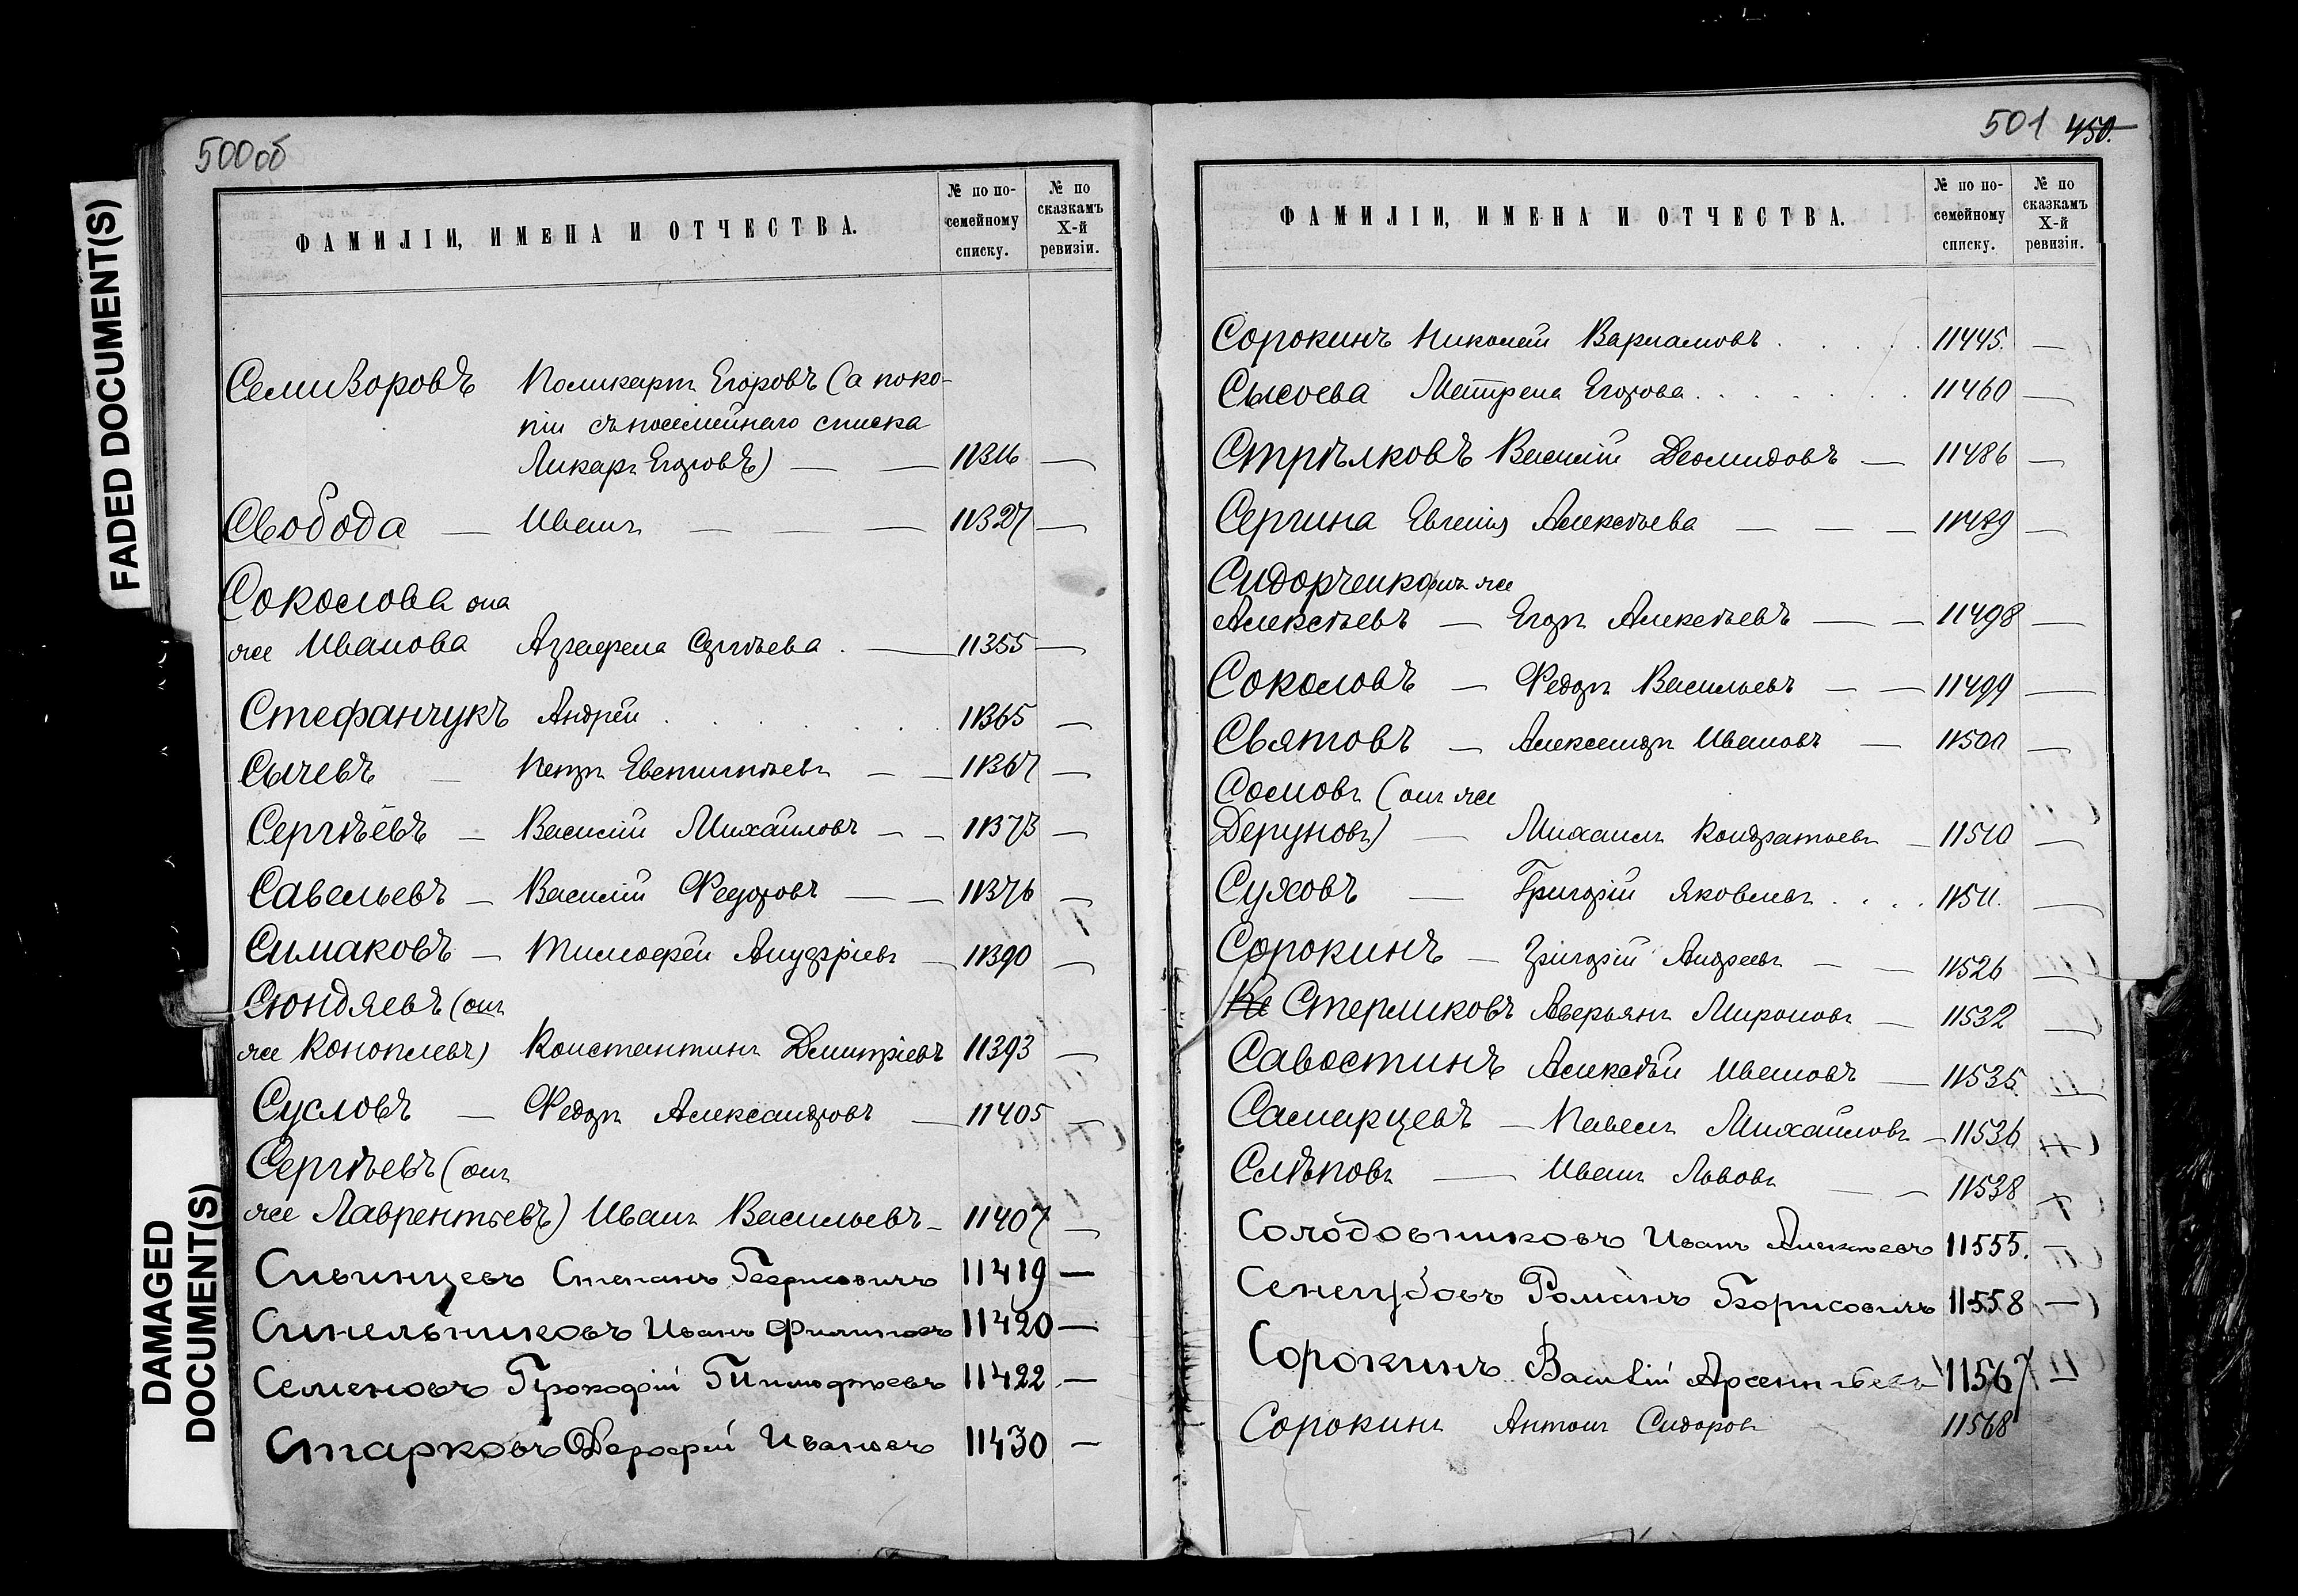 FADED DOCUMENT(S)
DAMAGED
DOCUMENT(S)
500об
ФАМИЛІИ, ИМЕНА И ОТЧЕСТВА.
№ по по-
семейному
списку.
№ по
сказкамъ
X-й
ревизіи.
Семизоровъ Поликарпъ Егоровъ (а по ко-
піи съ посемейнаго списка
Ликарп Егоровъ) — — 11316 —
Свобода — Иванъ — — — 11327 —
Соколова она
же Иванова Аграфена Сергѣева . — 11355 —
Стефанчукъ Андрей . . . . . 11365 —
Сычевъ — Петръ Евстигнѣевъ — — 11367 —
Сергѣевъ — Василій Михайловъ — — 11373 —
Савельевъ — Василій Федоровъ — — 11376 —
Симаковъ — Тимофей Ануфріевъ — 11390 —
Сюндяевъ (онъ
же Коноплевъ) Константинъ Дмитріевъ 11393 —
Сусловъ — Федоръ Александровъ — 11405 —
Сергѣевъ (онъ
же Лаврентьевъ) Иванъ Васильевъ — 11407 —
Сивинцевъ Степанъ Борисовичъ 11419 —
Синельниковъ Иванъ Филиповъ 11420 —
Семеновъ Прокофій Тимофѣевъ 11422 —
Старковъ Дорофей Ивановъ 11430 —
501 450.
ФАМИЛІИ, ИМЕНА И ОТЧЕСТВА.
№ по по-
семейному
списку.
№ по
сказкамъ
X-й
ревизіи.
Сорокинъ Николай Варламовъ . . . . 11445. —
Сысоева Матрена Егорова . . . . . . 11460 —
Стрѣлковъ Василій Деомидовъ — 11486 —
Сергина Евгенія Алексѣева — — — 11489 —
Сидорченко онъ же
Алексѣевъ — Егоръ Алексѣевъ — — 11498 —
Соколовъ — Федоръ Васильевъ — — 11499 —
Святовъ — Александръ Ивановъ — 11501 —
Сомовъ (онъ же
Деруновъ) — Михаилъ Кондратьевъ — 11510 —
Суховъ — Григорій Яковлевъ . . . . 11511. —
Сорокинъ — Григорій Андреевъ — — 11526 —
Не Стерликовъ Аверьянъ Мироновъ — 11532 —
Савостинъ Алексѣй Ивановъ — 11535 —
Самарцевъ — Павелъ Михайловъ — 11536
Слѣповъ — Иванъ Львовъ — — 11538
Солодовниковъ Иванъ Алексѣевъ 11555. —
Романъ Борисовичъ 11558 —
Сорокинъ Василій Арсентьевъ 11567
Сорокинъ Антонъ Сидоровъ 11568